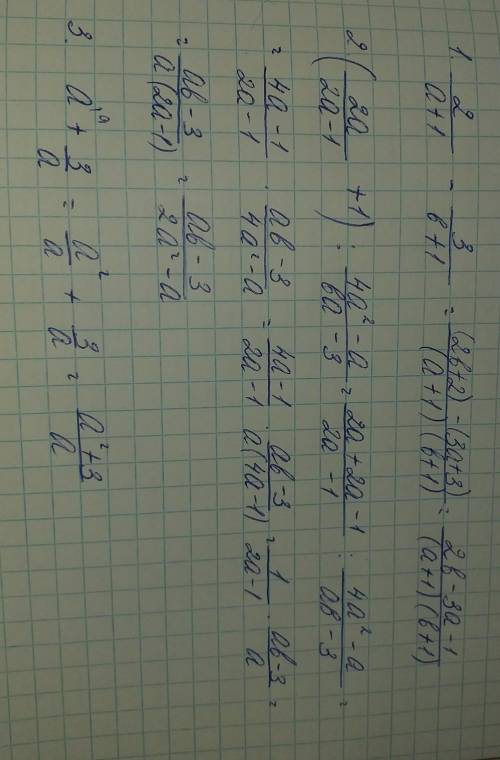 1. 2/(a+1) - 3/(b+1) = ((2b+2)-(3a+3))/((a+1)(b+1)) = (2b-3a-1)/((a+1)(b+1))
2 (2a/(2a-1) + 1) : (4a²-a)/(6a-3) = (2a+2a-1)/(2a-1) : (4a²-a)/(ab-3) =
= (4a-1)/(2a-1) · (ab-3)/(4a²-a) = (4a-1)/(2a-1) · (ab-3)/(a(4a-1)) = 1/(2a-1) · (ab-3)/a =
= (ab-3)/(a(2a-1)) = (ab-3)/(2a²-a)
3. a^{\a} + 3/a = a²/a + 3/a = (a²+3)/a